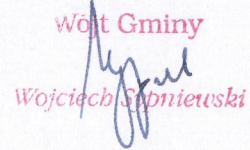 Wójt Gminy
Wojciech Sepniewski